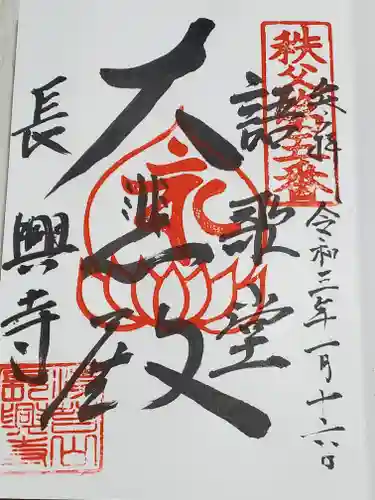 奉拝 令和三年一月十六日
秩父第五番
語歌堂
大悲殿
長興寺